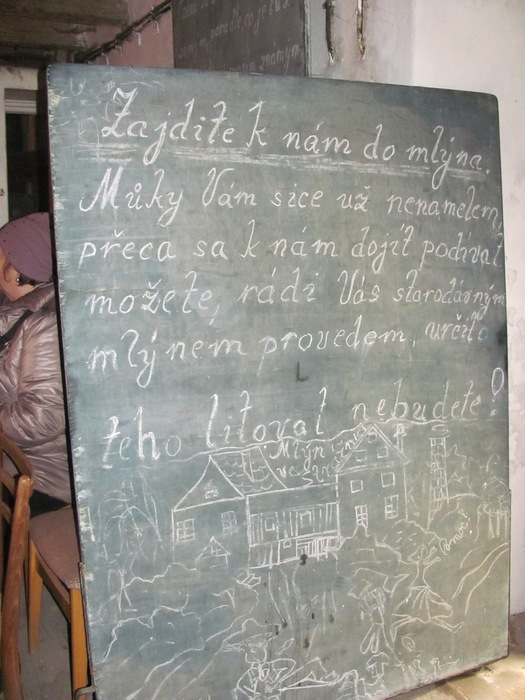 Zajdite k nám do mlýna.
Múky Vám sice už nenamelem,
přeca sa k nám dojít podívat
možete, rádi Vás starodávným
mlýnem provedem, určitě
teho litovat nebudete!
Mlýn